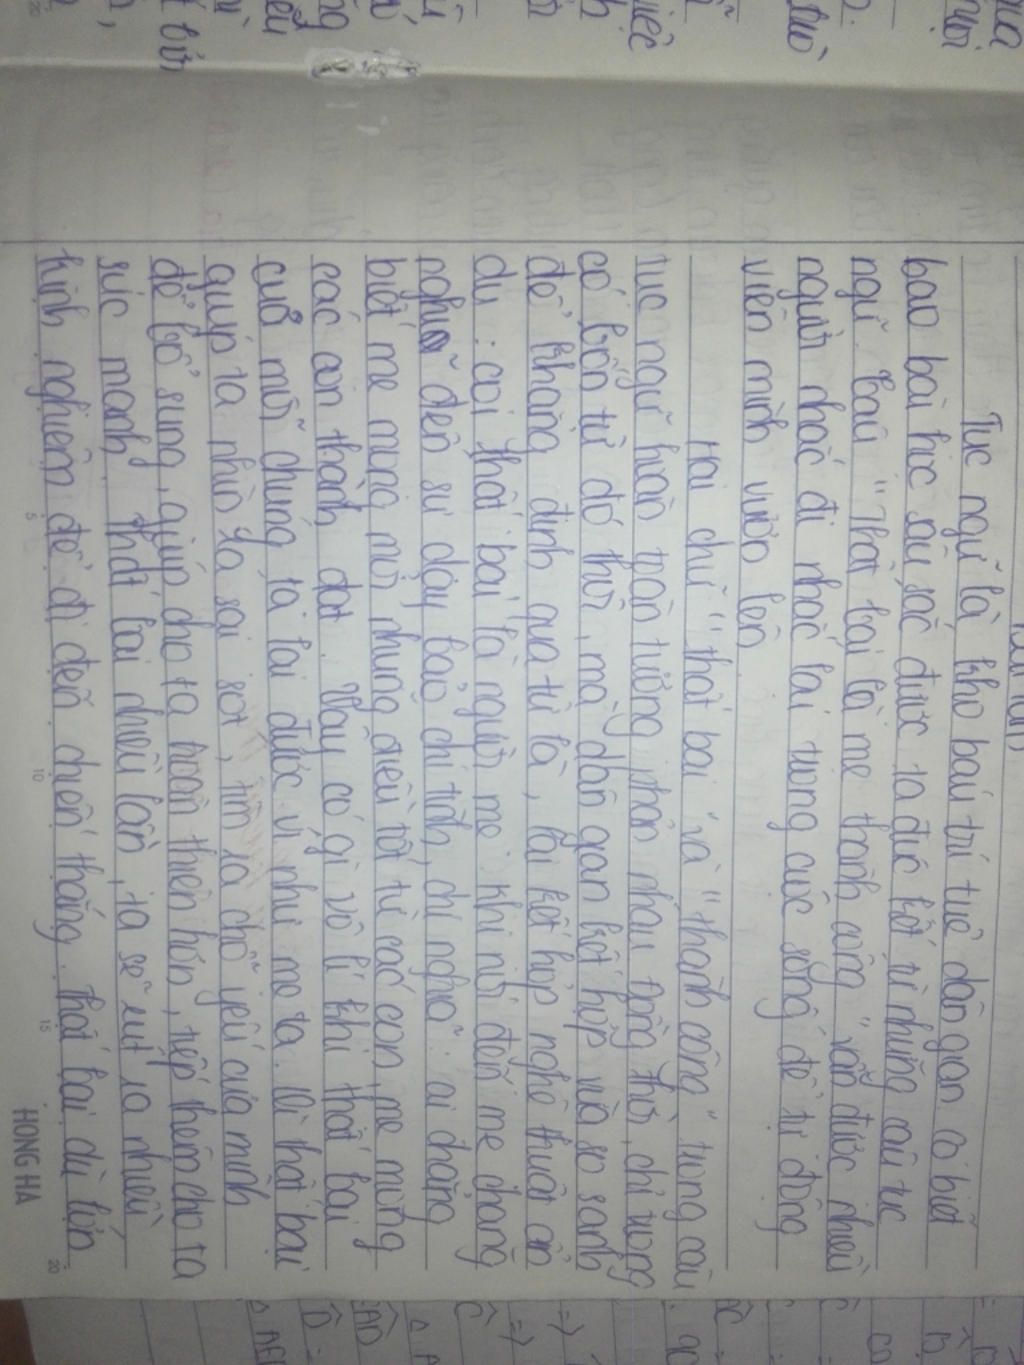 Tục ngữ là kho báu trí tuệ dân gian có biết
bao bài học sâu sắc được ta đúc kết từ những câu tục
ngữ. Câu "Thất bại là mẹ thành công" vẫn được nhiều
người nhắc đi nhắc lại trong cuộc sống để tự động
viên mình vươn lên.
Hai chữ "thất bại" và "thành công" trong câu
tục ngữ hoàn toàn tương phản nhau đồng thời, chỉ trong
có bốn từ đó thôi, mà dân gian kết hợp vừa so sánh
để khẳng định qua từ là, lại kết hợp nghệ thuật ẩn
dụ: coi thất bại là người mẹ. Khi nói đến mẹ chẳng
nghĩa đến sự dạy bảo chí tình, chí nghĩa: ai chẳng
biết mẹ mừng mỏi những điều tốt từ các con, mẹ mong
các con thành đạt. Vậy có gì vô lí khi thất bại
của mỗi chúng ta lại được ví như mẹ ta. Vì thất bại
giúp ta nhìn ra sai sót, tìm ra chỗ yếu của mình
để bổ sung, giúp cho ta hoàn thiện hơn, tiếp thêm cho ta
sức mạnh. Thất bại nhiều lần, ta sẽ rút ra nhiều
kinh nghiệm để đi đến chiến thắng. Thất bại dù lớn
5 10 15 20
HONG HA